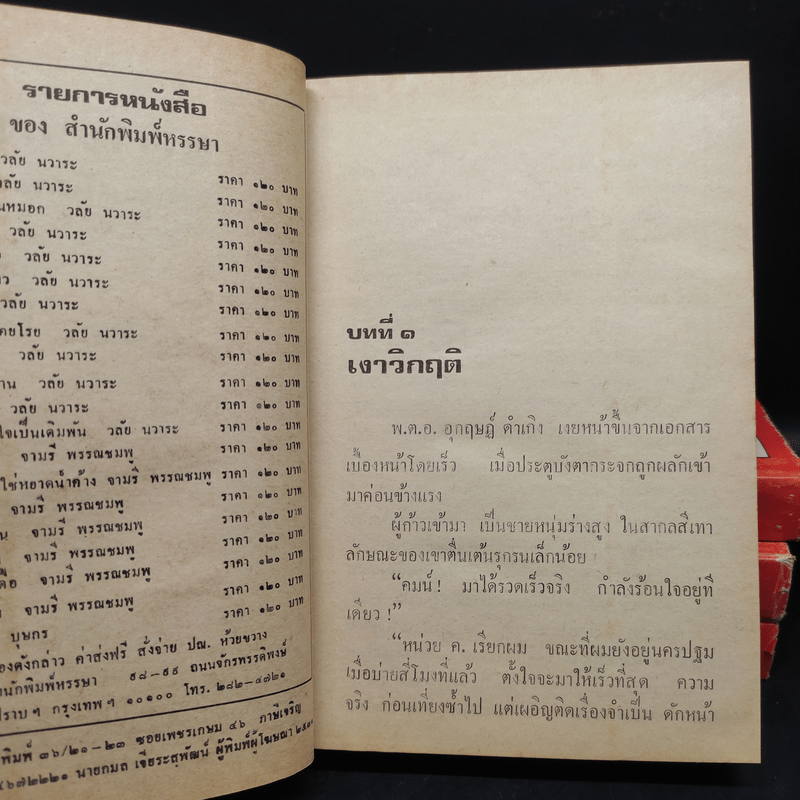 รายการหนังสือ
ของ สำนักพิมพ์หรรษา
วลัย นวาระ ราคา ๑๒๐ บาท
วลัย นวาระ ราคา ๑๒๐ บาท
นหมอก วลัย นวาระ ราคา ๑๒๐ บาท
วลัย นวาระ ราคา ๑๒๐ บาท
วลัย นวาระ ราคา ๑๒๐ บาท
ว วลัย นวาระ ราคา ๑๒๐ บาท
วลัย นวาระ ราคา ๑๒๐ บาท
คยโรย วลัย นวาระ ราคา ๑๒๐ บาท
วลัย นวาระ ราคา ๑๒๐ บาท
าน วลัย นวาระ ราคา ๑๒๐ บาท
วลัย นวาระ ราคา ๑๒๐ บาท
ใจเป็นเดิมพัน วลัย นวาระ ราคา ๑๒๐ บาท
จามรี พรรณชมพู ราคา ๑๒๐ บาท
ใช่หยาดน้ำค้าง จามรี พรรณชมพู ราคา ๑๒๐ บาท
จามรี พรรณชมพู ราคา ๑๒๐ บาท
น จามรี พรรณชมพู ราคา ๑๒๐ บาท
จามรี พรรณชมพู ราคา ๑๒๐ บาท
ดือ จามรี พรรณชมพู ราคา ๑๒๐ บาท
จามรี พรรณชมพู ราคา ๑๒๐ บาท
บุษกร
องดังกล่าว ค่าส่งฟรี สั่งจ่าย ปณ. ห้วยขวาง
ำนักพิมพ์หรรษา ๙๘-๙๙ ถนนจักรพรรดิพงษ์
ปราบฯ กรุงเทพฯ ๑๐๑๐๐ โทร. ๒๘๒-๔๗๒๑
พิมพ์ ๓๖/๒๑-๒๓ ซอยเพชรเกษม ๔๖ ภาษีเจริญ
๔๖๗๒๒๒๑ นายกมล เจียระสุพัฒน์ ผู้พิมพ์ผู้โฆษณา
บทที่ ๑
เงาวิกฤติ
พ.ต.อ. อุกฤษฏ์ ดำเกิง เงยหน้าขึ้นจากเอกสาร
เบื้องหน้าโดยเร็ว เมื่อประตูบังตากระจกถูกผลักเข้า
มาค่อนข้างแรง
ผู้ก้าวเข้ามา เป็นชายหนุ่มร่างสูง ในสากลสีเทา
ลักษณะของเขาตื่นเต้นรุกรนเล็กน้อย
“คมน์! มาได้รวดเร็วจริง กำลังร้อนใจอยู่ที
เดียว!”
“หน่วย ค. เรียกผม ขณะที่ผมยังอยู่นครปฐม
เมื่อบ่ายสี่โมงที่แล้ว ตั้งใจจะมาให้เร็วที่สุด ความ
จริง ก่อนเที่ยงซ้ำไป แต่เผอิญติดเรื่องจำเป็น ดักหน้า